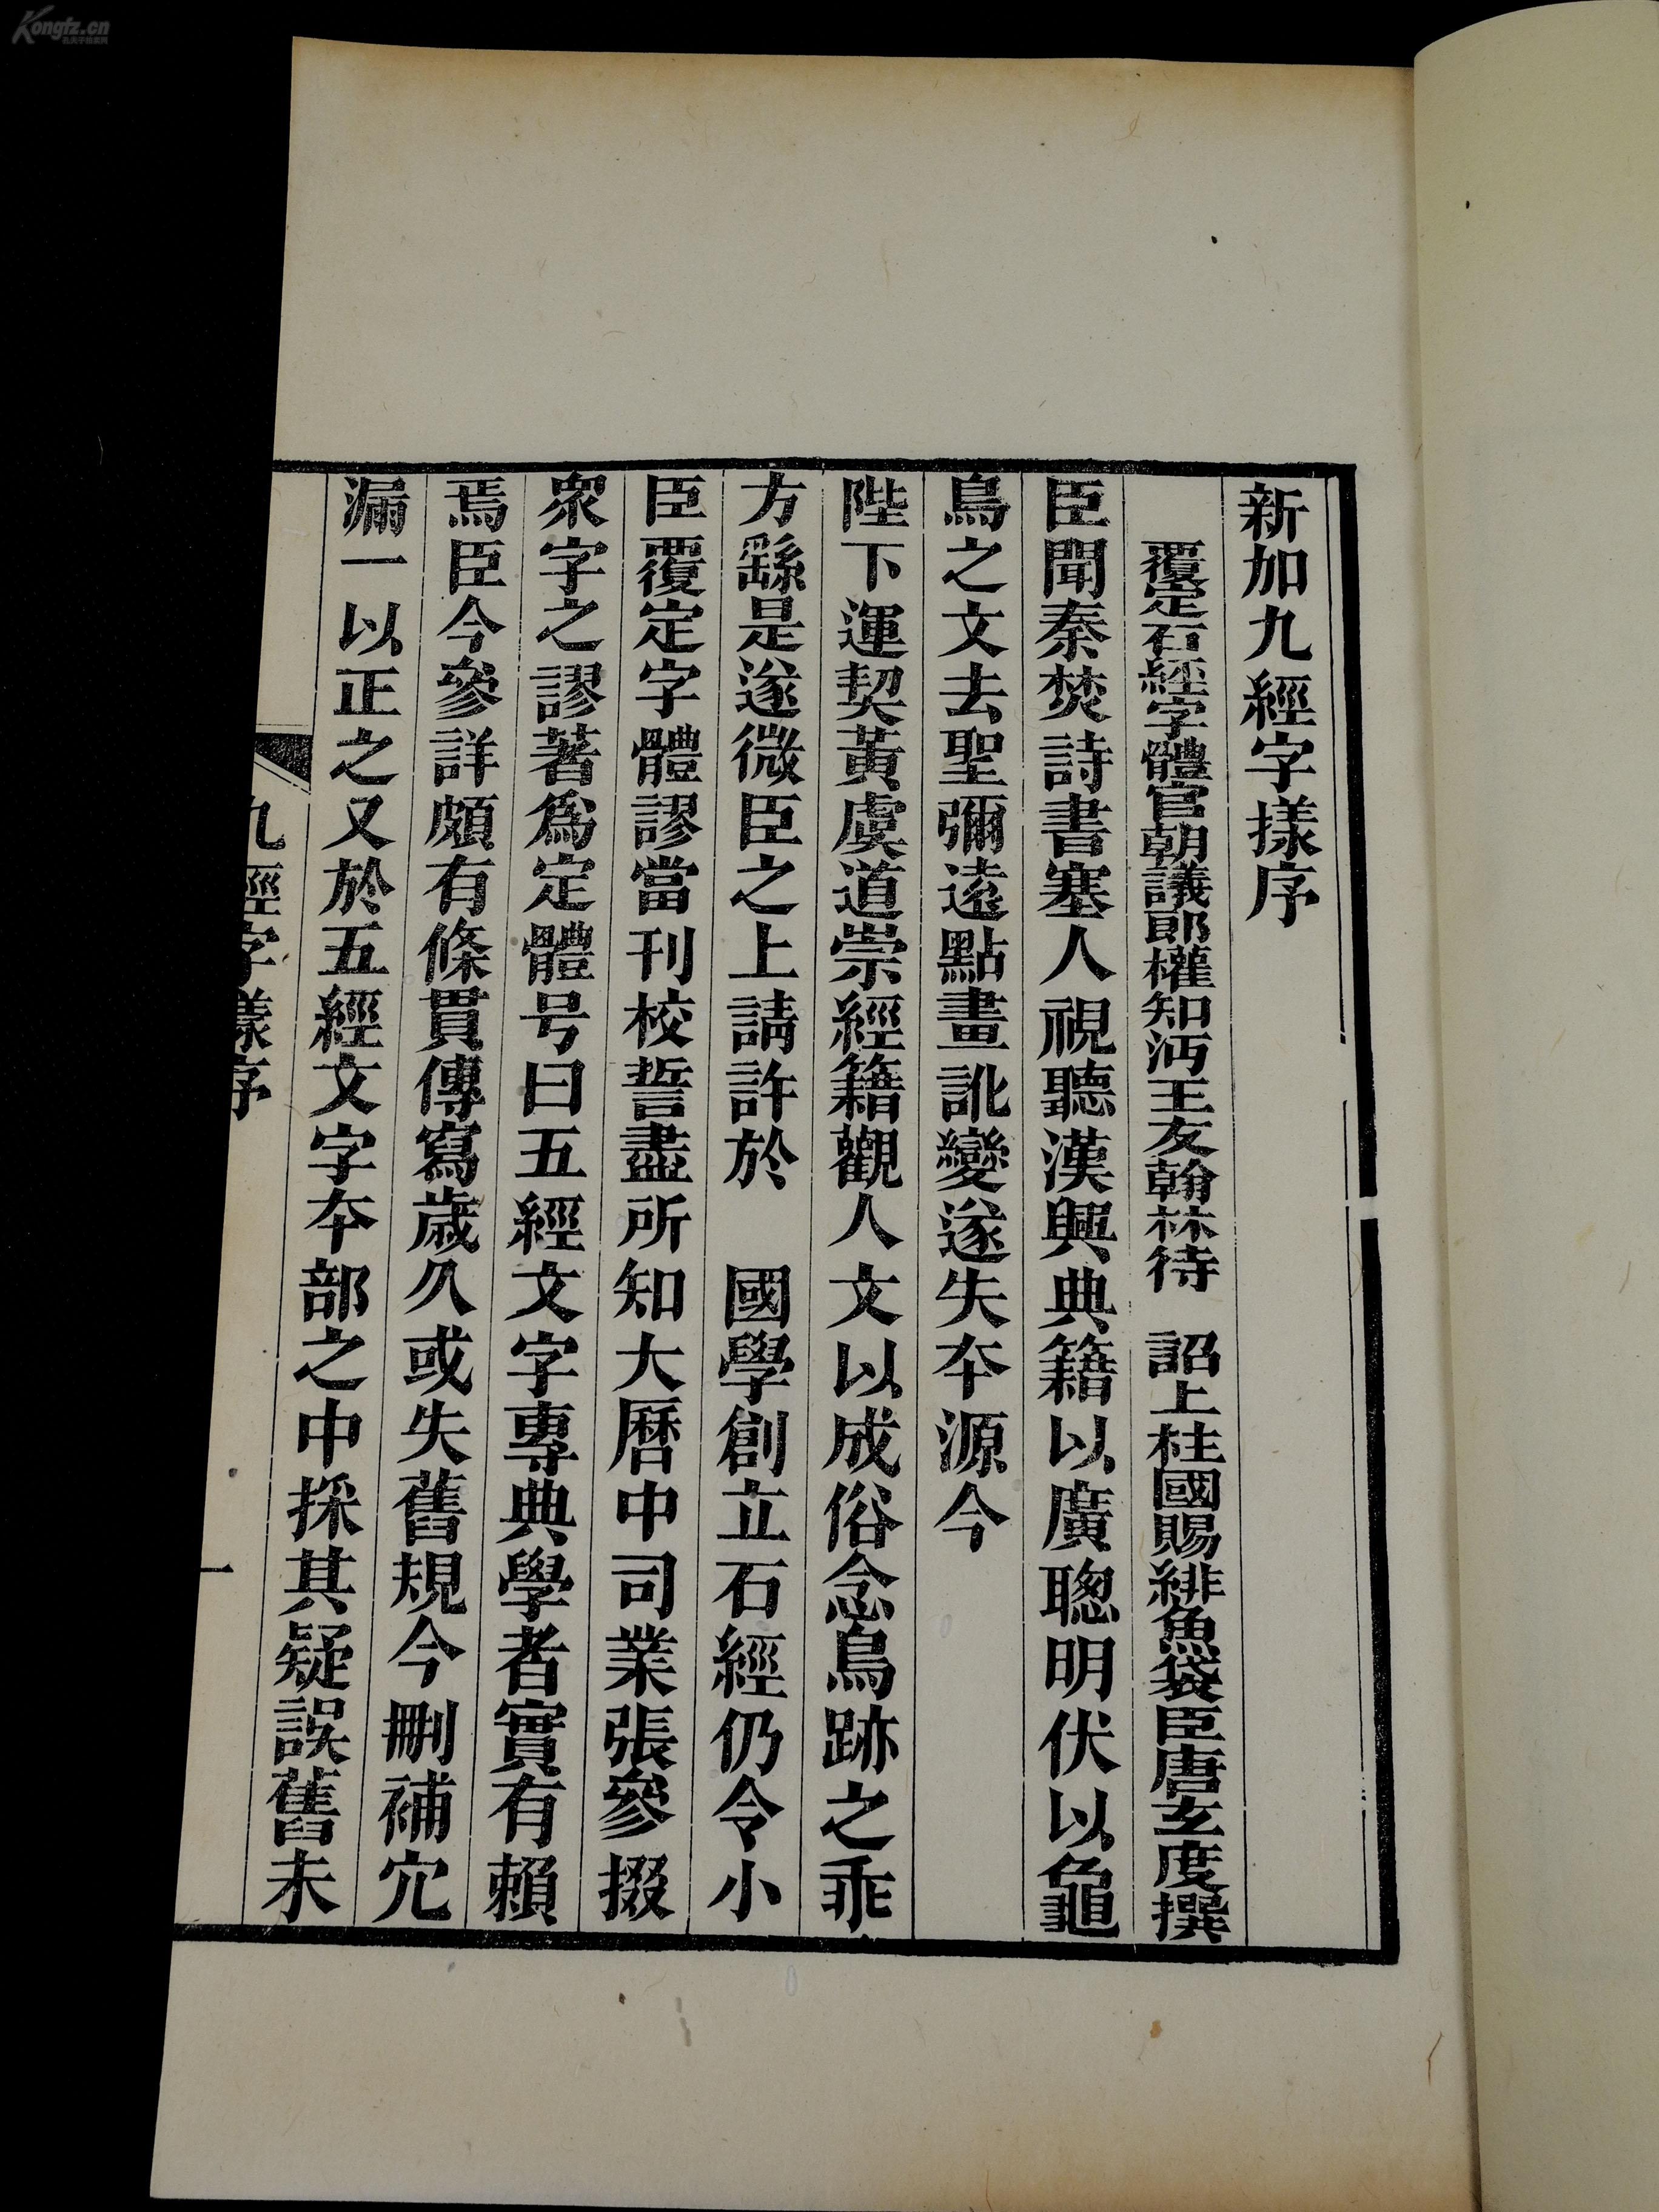 新加九經字㨾序
覆定石經字體官朝議郎權知沔王友翰林待　詔上柱國賜緋魚袋臣唐玄度撰
臣聞秦焚詩書塞人視聽漢興典籍以廣聰明伏以龜
鳥之文去聖彌遠點畫訛變遂失夲源今
陛下運契黃虞道崇經籍觀人文以成俗念鳥跡之乖
方繇是遂微臣之上請許於　國學創立石經仍令小
臣覆定字體謬當刊校誓盡所知大曆中司業張參掇
衆字之謬著爲定體号曰五經文字專典學者實有賴
焉臣今參詳頗有條貫傳寫歲久或失舊規今刪補宂
漏一以正之又於五經文字夲部之中採其疑誤舊未
九經字㨾序
一
Kongfz.cn